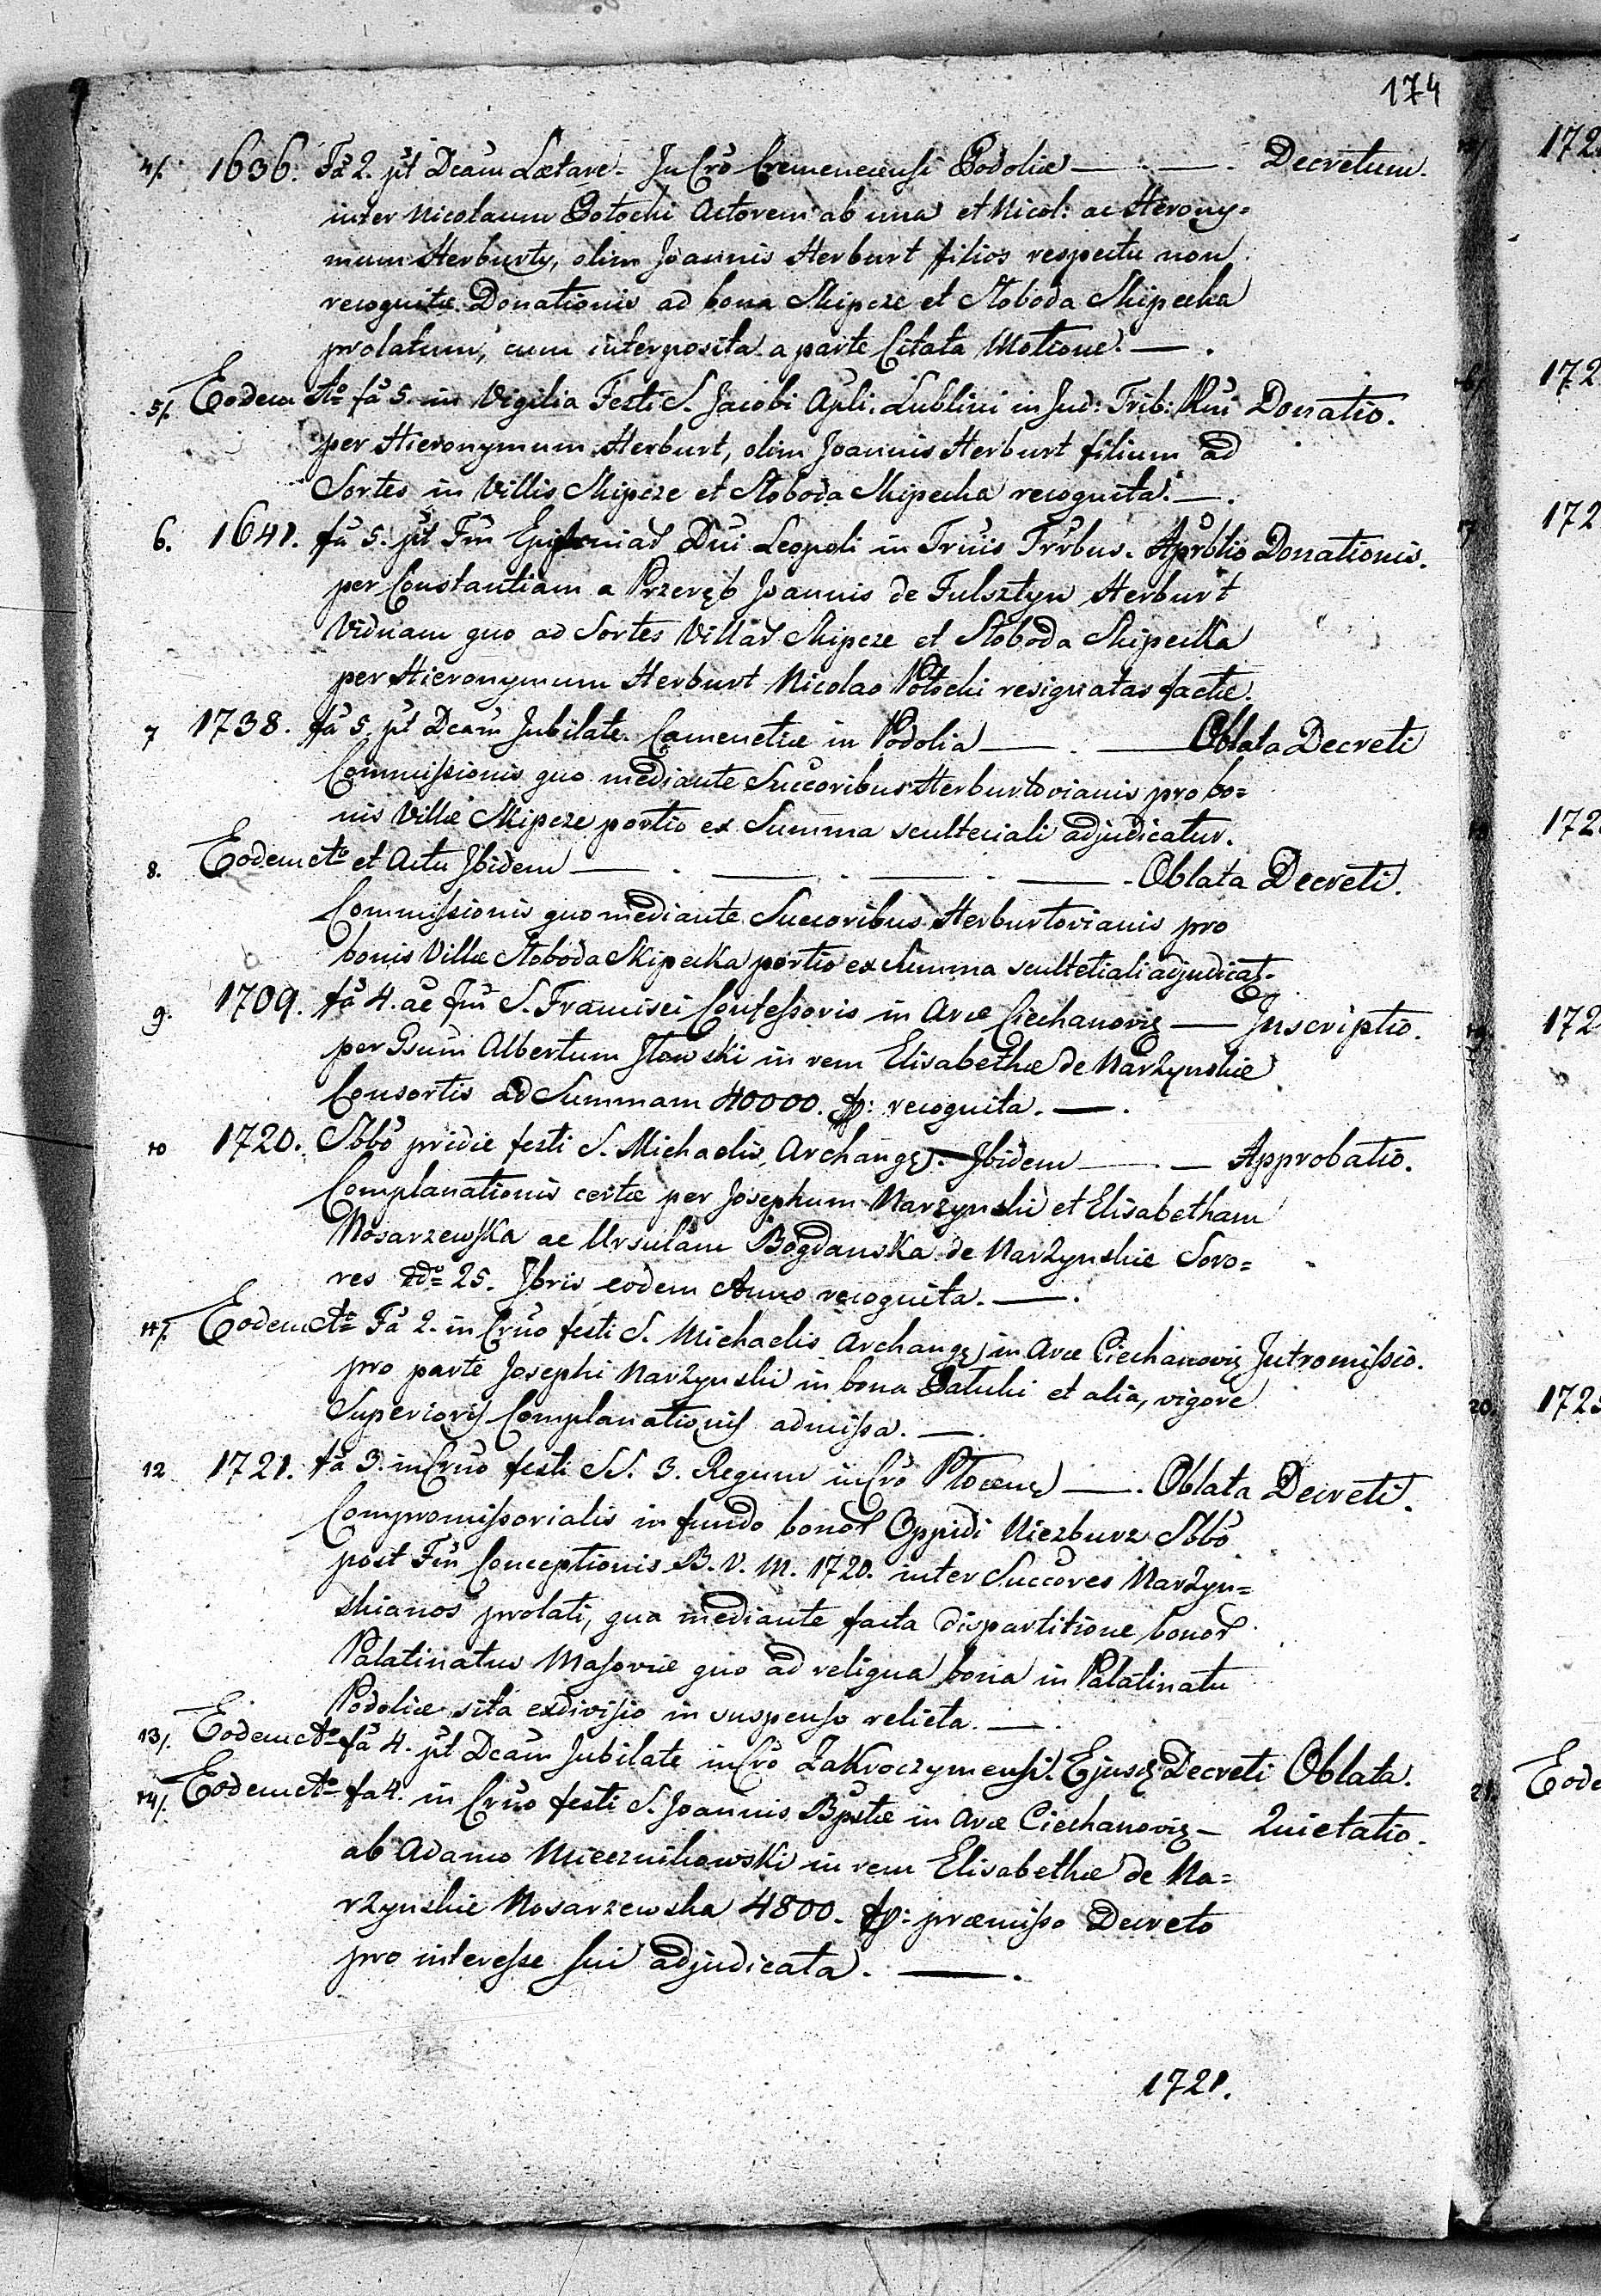 174
4/. 1636. Fa 2. pt Dcam Lætare. In Cro Cremenecensi Podoliæ — . — . Decretum.
inter Nicolaum Potocki Actorem ab una et Nicol: ac Hierony=
mum Herburty, olim Joannis Herburt filios respectu non
recognitæ Donationis ad bona Skipcze et Słoboda Skipecka
prolatum, cum interposita a parte Citata Motione. — .
5/. Eodem Ao fa 5. in Vigilia Festi S. Jacobi Apli. Lublini in Jud: Trib: Rni Donatio.
per Hieronymum Herburt, olim Joannis Herburt filium ad
Sortes in Villis Skipcze et Słoboda Skipecka recognita. — .
6. 1641. fa 5. pt Fm Epifaniar Dni Leopoli in Truis Trrbus. Aprbtio Donationis.
per Constantiam a Przeręb Joannis de Fulsztyn Herburt
Viduam quo ad Sortes Villar Skipcze et Słoboda Skipecka
per Hieronymum Herburt Nicolao Potocki resignatas factæ.
7 1738. fa 5. pt Dcam Jubilate. Camenetiæ in Podolia — . — Oblata Decreti
Commissionis quo mediante Succoribus Herburtovianis pro bo=
nis Villæ Skipcze portio ex Summa scultetiali adjudicatur.
8. Eodem Ao et Actu Ibidem — . — . — . — . Oblata Decreti.
Commissionis quo mediante Succoribus Herburtovianis pro
bonis Villæ Słoboda Skipecka portio ex Summa scultetiali adjudicat.
9. 1709. fa 4. ac fm S. Francisci Confessoris in Arce Ciechanovię — Inscriptio.
per Gsum Albertum Iłowski in rem Elisabethæ de Narzynskie
Consortis ad Summam 40000. fp: recognita. — .
10 1720. Sbbo pridie festi S. Michaelis, Archangę. Ibidem — . — Approbatio.
Complanationis certæ per Josephum Narzynski et Elisabetham
Nosarzewska ac Ursulam Bogdanska de Narzynskie Soro=
res do 25. Jbris eodem Anno recognita. — .
11/. Eodem Ao Fa 2. in Crno festi S. Michaelis Archangę in Arce Ciechanovię Intromissio.
pro parte Josephi Narzynski in bona Patuki et alia, vigore
Superioris Complanationis admissa. — .
12 1721. fa 3. in Crno festi SS. 3. Regum in Cro Płocenę — . Oblata Decreti.
Compromissorialis in fundo bonor Oppidi Niezburz Sbbo
post Fm Conceptionis B. V. M. 1720. inter Succores Narzyn=
skianos prolati, qua mediante facta dispartitione bonor
Palatinatus Masoviæ quo ad reliqua bona in Palatinatu
Podoliæ sita exdivisio in suspenso relicta. — .
13/. Eodem Ao fa 4. pt Dcam Jubilate in Cro Zakroczymensi. Ejusdę Decreti Oblata.
14/. Eodem Ao fa 4. in Crno festi S. Joannis Bpstæ in Arce Ciechanovię — Quietatio.
ab Adamo Miecznikowski in rem Elisabethæ de Na=
rzynskie Nosarzewska 4800. fp: præmisso Decreto
pro interesse sui adjudicata. — .
1721.
172
172
172
172
172
20. 172
21. Eode